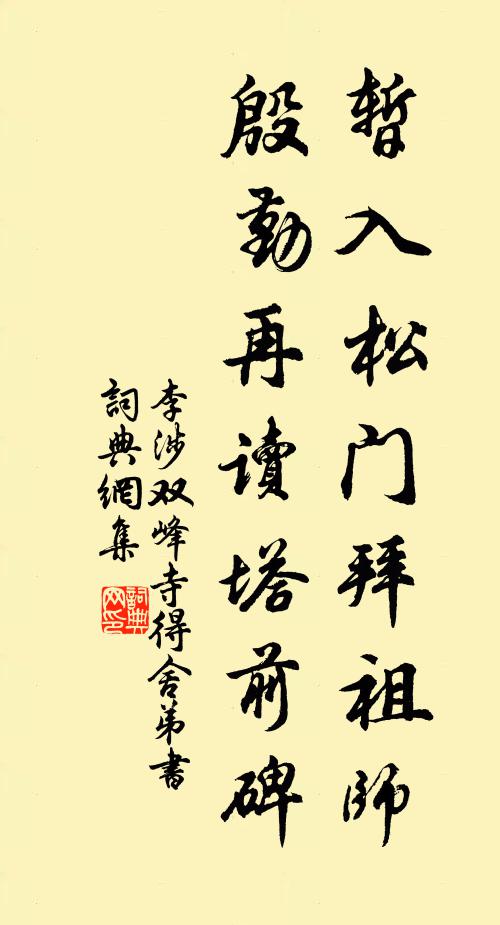 暂入松门拜祖師
殷勤再讀塔前碑
李涉双峰寺得舍弟書
詞典網集
詞典网印